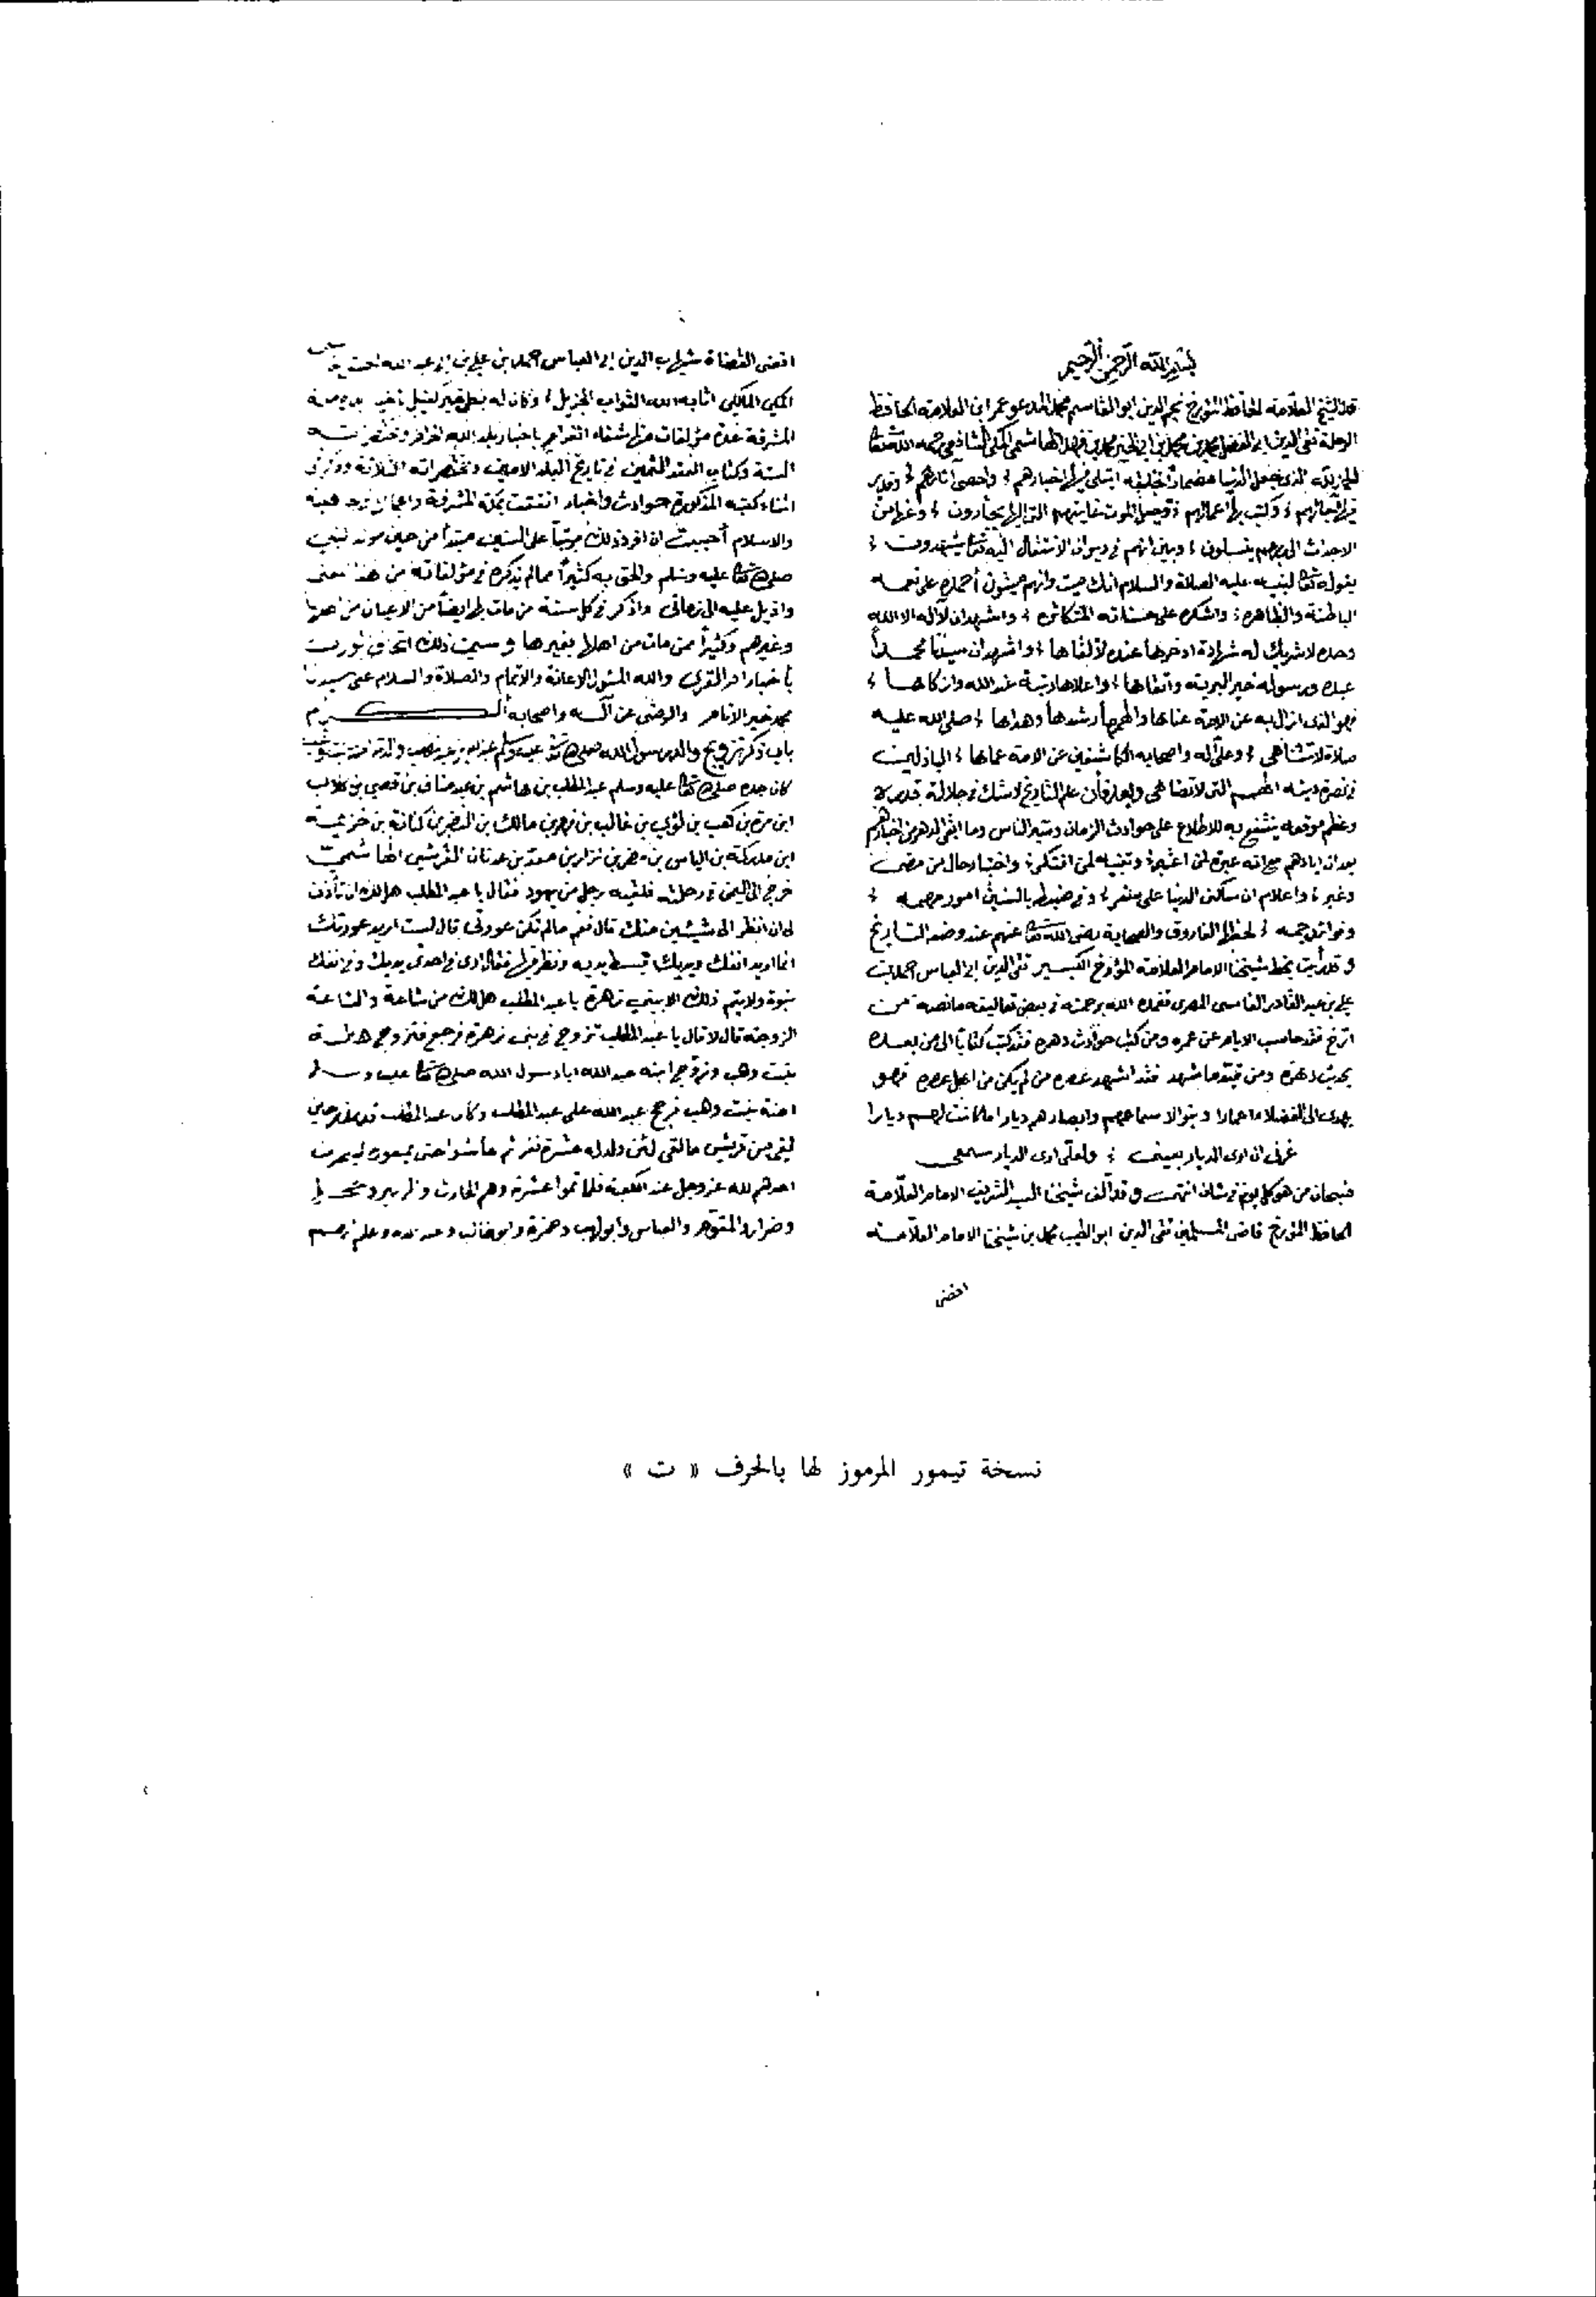 بسم الله الرحمن الرحيم
قال الشيخ العلامة الحافظ المؤرخ نجم الدين ابو القاسم محمد المدعو عمر ابن العلامة الحافظ
الرحلة تقى الدين ابى الفضل محمد بن محمد بن ابى الخير محمد بن فهد الهاشمى المكى الشافعى رحمه الله تعالى
الحمد لله الذى جعل الدنيا مضمارا لخليقه ابتلى فيها اخبارهم ؛ واحصى آثارهم ؛ وقدر
فيها آجالهم ؛ وكتب بها اعمالهم ؛ وجعل الموت غايتهم التى اليها يجأرون ؛ وغدا من
الاجداث الى ربهم ينسلون ؛ وبين انهم فى ديوان الانتقال اليه
بقوله تعالى لنبيه عليه الصلاة والسلام انك ميت وانهم ميتون أحمده على نعمه
الباطنة والظاهرة ؛ واشكره على حسناته المتكاثرة ؛ واشهد ان لا اله الا الله
وحده لا شريك له شهادة ادخرها عنده لألقاها ؛ واشهد ان سيدنا محمداً
عبده ورسوله خير البرية واتقاها ؛ واعلاها رتبة عند الله وازكاها ؛
فهو الذى ازال به عن الامة عناها والهمها رشدها وهداها ؛ صلى الله عليه
صلاة لا تتناهى ؛ وعلى آله واصحابه الكاشفين عن الامة عماها ؛ الباذلين
فى نصرة دينه الهمم التى لا تضاهى وبعد فأن علم التاريخ لا شك فى جلالة قدره
وعظم موقعه ينتفع به للاطلاع على حوادث الزمان وسير الناس وما ابقى الدهر من اخبارهم
بعد ان ابادهم مع انه عبرة لمن اعتبر ؛ وتنبيه لمن افتكر ؛ واختبار حال من مضى
وغبر ؛ واعلام ان ساكن الدنيا على سفر ؛ وفى ضبطه بالسنين امور مهمه ؛
وفوائد جمه ؛ لحظها الفاروق والصحابة رضى الله تعالى عنهم عند وضع التاريخ
وقد رأيت بخط شيخنا الامام العلامة المؤرخ الكبير تقى الدين ابى العباس احمد بن
على بن عبد القادر المصرى تغمده الله برحمته فى بعض تعاليقه ما نصه من
ارخ فقد حاسب الايام عن عمره ومن كتب حوادث دهره فقد كتب كتابا الى من بعده
بحديث دهره ومن قيد ما شهد فقد اشهد عصره من لم يكن من اهل عصره فهو
يهدى الى الفضلاء اعمارا ويبوئ اسماعهم وابصارهم ديارا ما كانت لهم ديارا
عزنى ان ارى الديار بعينى ؛ ولعلى ارى الديار بسمعى
فسبحان من هو كل يوم فى شان انتهى وقد ألف شيخنا السيد الشريف الامام العلامة
الحافظ المؤرخ قاضى المسلمين تقى الدين ابو الطيب محمد بن شيخنا الامام العلامة
اقضى
اقضى القضاة شهاب الدين ابى العباس احمد بن على بن ابى عبد الله
المكى المالكى اثابه الله الثواب الجزيل ؛ وكان له بكل خير كفيل
المشرفة عدة مؤلفات منها شفاء الغرام باخبار البلد الحرام ومختصراته
الستة وكتاب العقد الثمين فى تاريخ البلد الامين ومختصراته الثلاثة وذكر فى
اثناء كتبه المذكورة حوادث واخبار اتفقت بمكة المشرفة
والاسلام أحببت ان افرد ذلك مرتباً على السنين مبتدأ من حين مولد النبى
صلى الله تعالى عليه وسلم والحق به كثيراً مما لم يذكره فى مؤلفاته من هذا المعنى
واذيل عليه الى زمانى واذكر فى كل سنة من مات بها ايضاً من الاعيان من اهلها
وغيرهم وكثيراً ممن مات من اهلها بغيرها وسميت ذلك اتحاف الورى
بأخبار ام القرى والله المسئول الاعانة والاتمام والصلاة والسلام على سيدنا
محمد خير الانام والرضى عن آله واصحابه الكرام
باب ذكر تزويج والد رسول الله صلى الله تعالى عليه وسلم
كان جده صلى الله تعالى عليه وسلم عبد المطلب بن هاشم بن عبد مناف بن قصى بن كلاب
ابن مرة بن كعب بن لؤى بن غالب بن فهر بن مالك بن النضر بن كنانة بن خزيمة
ابن مدركة بن الياس بن مضر بن نزار بن معد بن عدنان القرشى الهاشمى
خرج الى اليمن فى رحلة فلقيه رجل من يهود فقال يا عبد المطلب هل لك ان تأذن
لى ان انظر الى شيئين منك قال نعم ما لم تكن عورتى قال لست اريد عورتك
انما اريد انفك ويديك فبسط يديه ونظر فيها فقال ارى فى احدى يديك وفى انفك
نبوة ولا يتم ذلك الا ببنى زهرة يا عبد المطلب هل لك من شاعة والشاعة
الزوجة قال لا قال يا عبد المطلب تزوج فى بنى زهرة فرجع فتزوج هالة
بنت وهب وزوج ابنه عبد الله ابا رسول الله صلى الله تعالى عليه وسلم
امنة بنت وهب فرجح عبد الله على عبد المطلب وكان عبد المطلب قد نذر حين
لقى من قريش ما لقى لئن ولد له عشرة نفر ثم عاشوا حتى يمنعوه لينحرن
احدهم لله عز وجل عند الكعبة فلما تموا عشرة وهم الحارث والزبير وحجل
وضرار والمقوم والعباس وابو لهب وحمزة وابو طالب وعبد الله
نسخة تيمور المرموز لها بالحرف « ت »